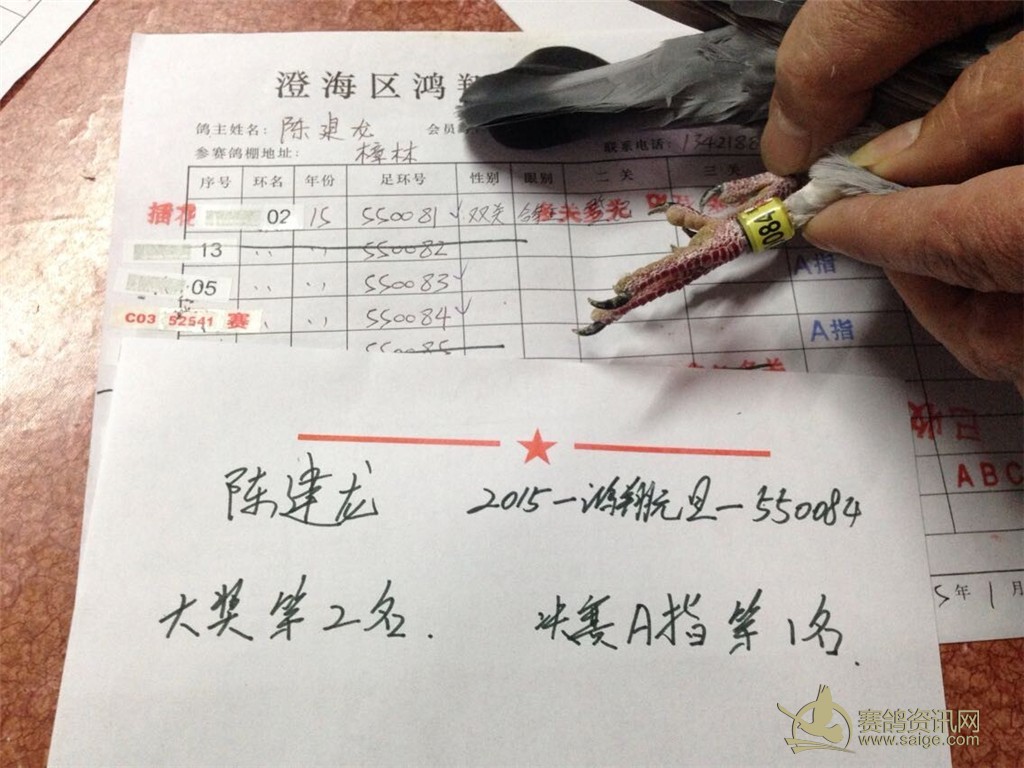 澄海区鸿翔
鸽主姓名：陈建龙 会员
参赛鸽棚地址：樟林 联系电话：1342188
序号 环名 年份 足环号 性别 眼别 二关 三关
插花 02 15 550081 双关
13 〃 〃 550082
05 〃 〃 550083 A指
C03 52541 赛 〃 〃 550084 A指
550085
已收
ABC
084
陈建龙 2015—鸿翔元旦—550084
大奖第2名. 决赛A指第1名.
5年1月
赛鸽资讯网
www.saige.com